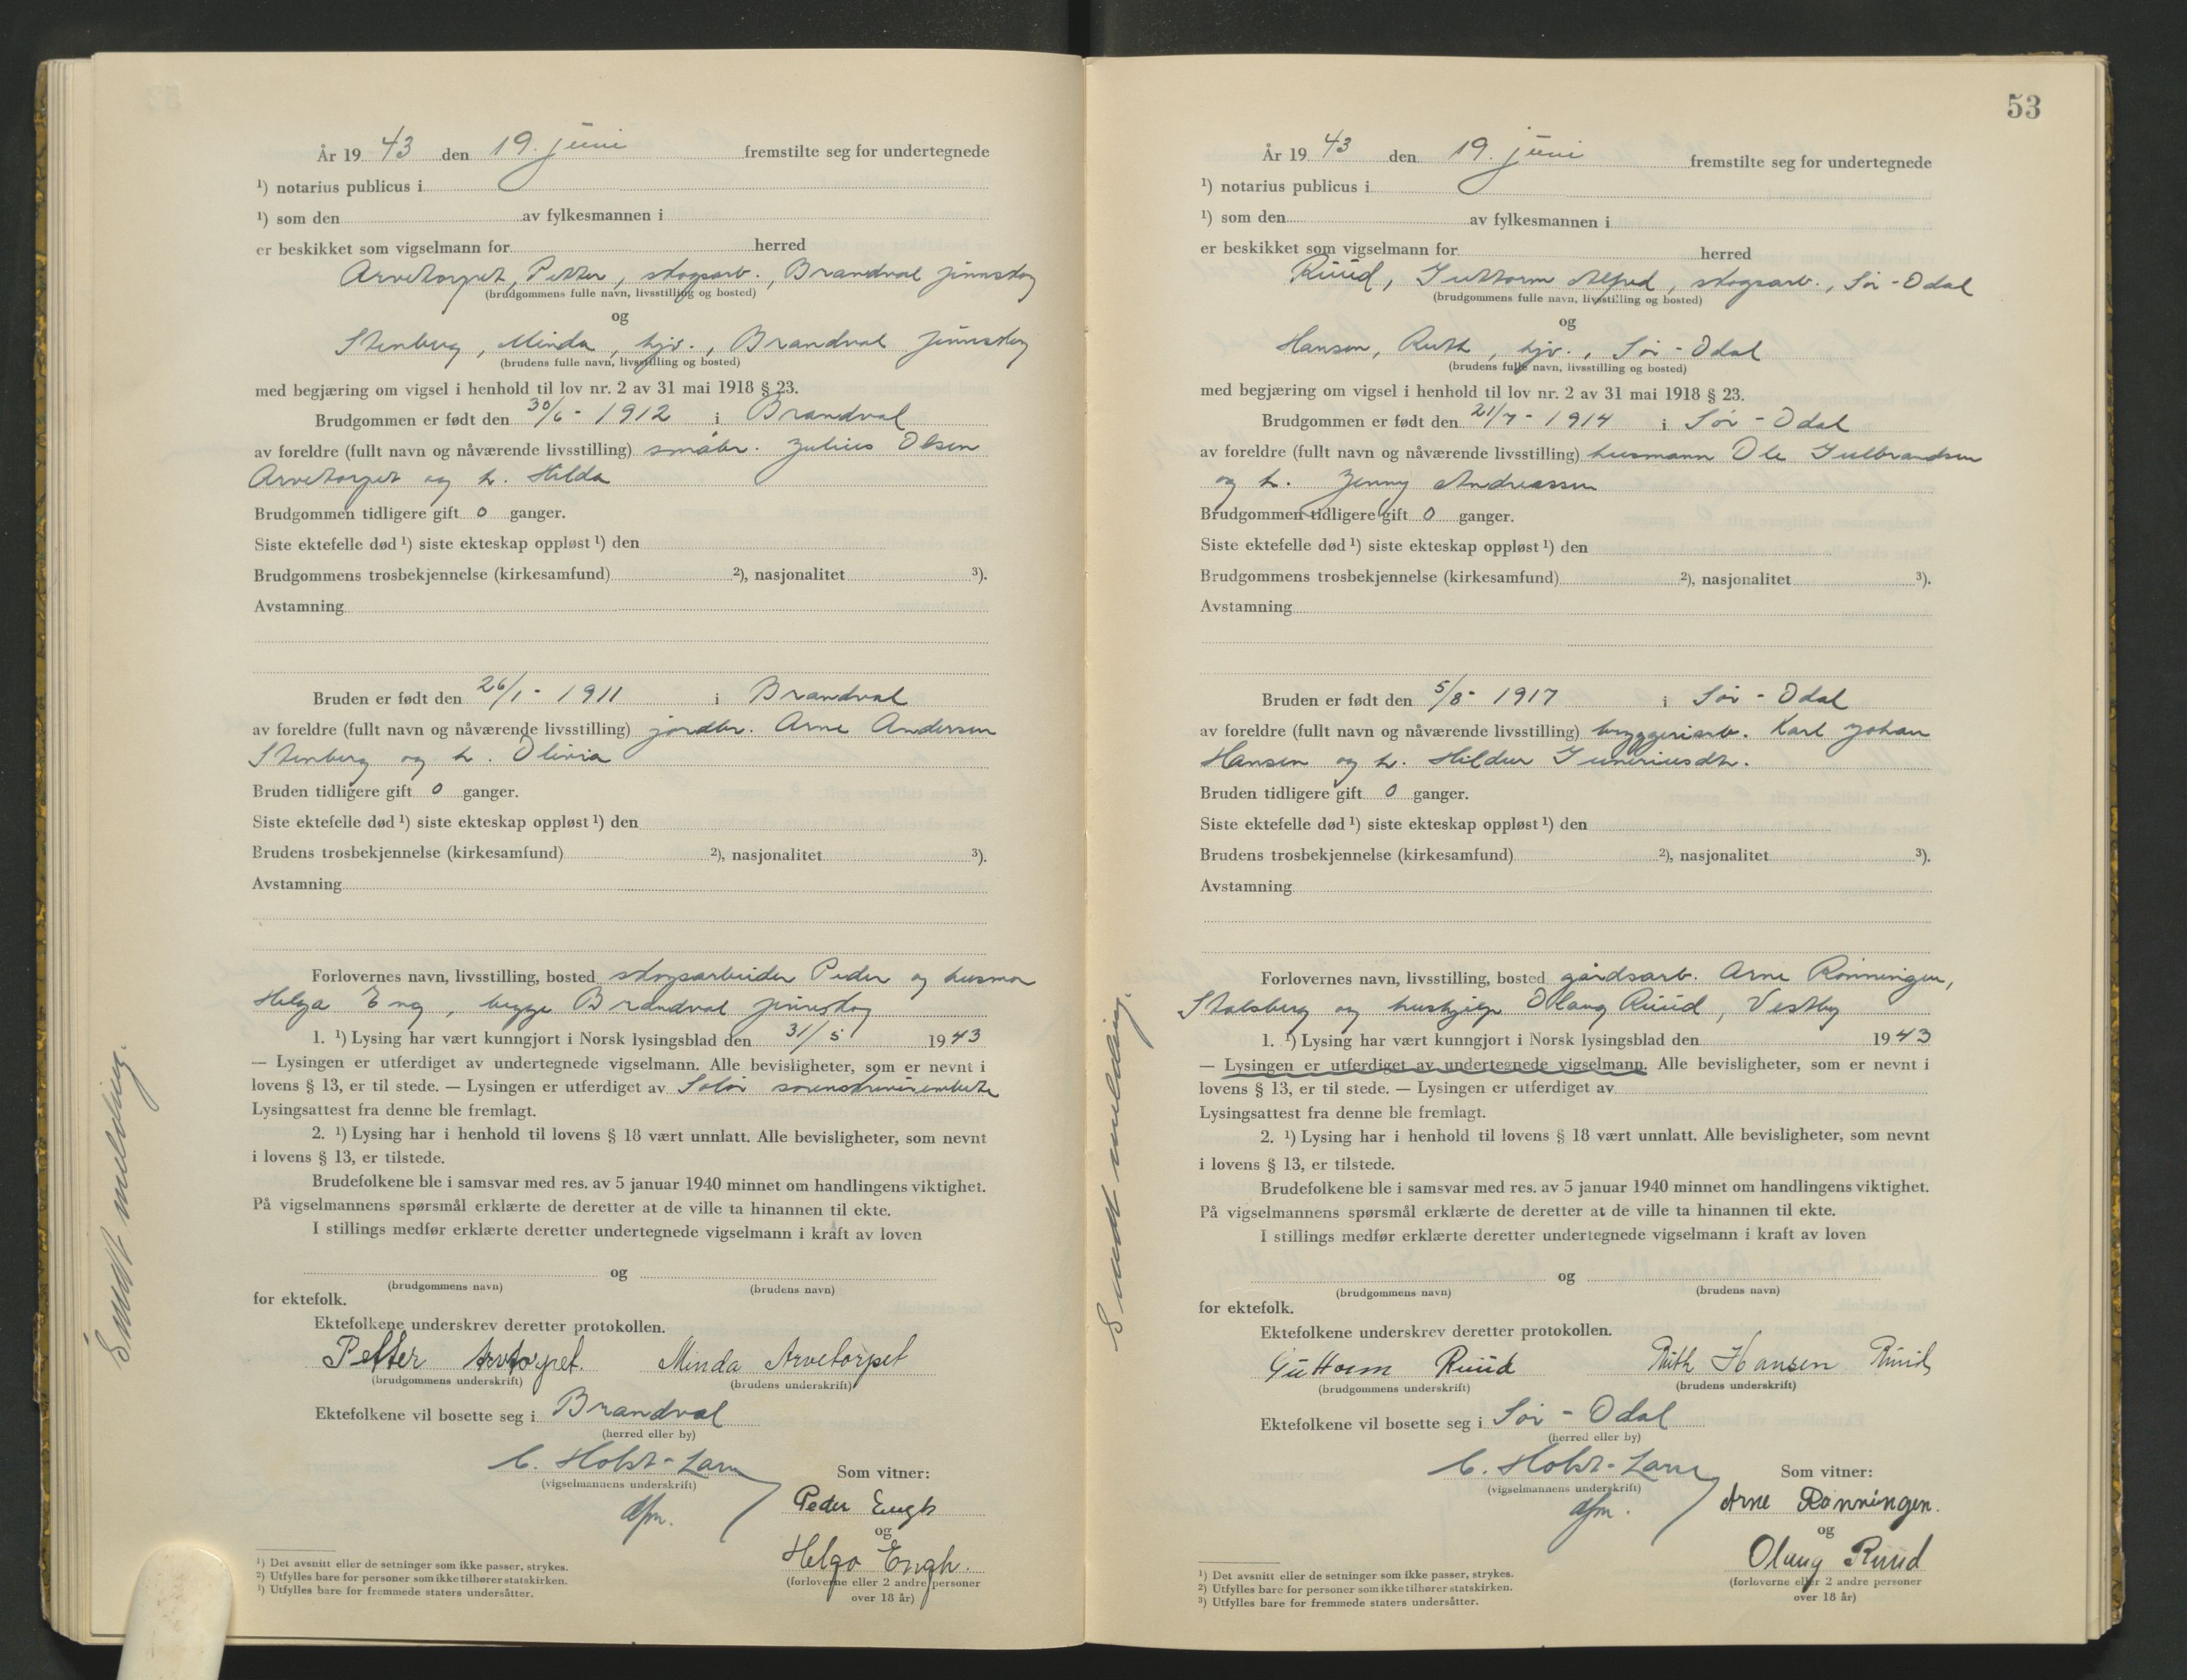 År 19 43 den 19. juni fremstilte seg for undertegnede
¹) notarius publicus i
¹) som den av fylkesmannen i
er beskikket som vigselmann for herred
Arvetorpet, Petter, skogsarb., Brandval Finnskog
(brudgommens fulle navn, livsstilling og bosted)
og
Stenberg, Minda, hjv., Brandval Finnskog
(brudens fulle navn, livsstilling og bosted)
med begjæring om vigsel i henhold til lov nr. 2 av 31 mai 1918 § 23.
Brudgommen er født den 30/6 - 1912 i Brandval
av foreldre (fullt navn og nåværende livsstilling) småbr. Julius Olsen
Arvetorpet og h. Hilda
Brudgommen tidligere gift 0 ganger.
Siste ektefelle død ¹) siste ekteskap oppløst ¹) den
Brudgommens trosbekjennelse (kirkesamfund) ²), nasjonalitet ³).
Avstamning
Bruden er født den 26/1 - 1911 i Brandval
av foreldre (fullt navn og nåværende livsstilling) jordbr. Arne Andersen
Stenberg og h. Olivia
Bruden tidligere gift 0 ganger.
Siste ektefelle død ¹) siste ekteskap oppløst ¹) den
Brudens trosbekjennelse (kirkesamfund) ²), nasjonalitet ³).
Avstamning
Forlovernes navn, livsstilling, bosted skogsarbeider Peder og husmor
Helga Eng, begge Brandval Finnskog
1. ¹) Lysing har vært kunngjort i Norsk lysingsblad den 31/5 1943
— Lysingen er utferdiget av undertegnede vigselmann. Alle bevisligheter, som er nevnt i
lovens § 13, er til stede. — Lysingen er utferdiget av Solør sorenskriverembete
Lysingsattest fra denne ble fremlagt.
2. ¹) Lysing har i henhold til lovens § 18 vært unnlatt. Alle bevisligheter, som nevnt
i lovens § 13, er tilstede.
Brudefolkene ble i samsvar med res. av 5 januar 1940 minnet om handlingens viktighet.
På vigselmannens spørsmål erklærte de deretter at de ville ta hinannen til ekte.
I stillings medfør erklærte deretter undertegnede vigselmann i kraft av loven
og
(brudgommens navn) (brudens navn)
for ektefolk.
Ektefolkene underskrev deretter protokollen.
Petter Arvtorpet. Minda Arvetorpet
(brudgommens underskrift) (brudens underskrift)
Ektefolkene vil bosette seg i Brandval
(herred eller by)
C. Holst-Larsen
(vigselmannens underskrift)
dfm.
Som vitner:
Peder Engh
og
Helga Engh.
(forloverne eller 2 andre personer
over 18 år)
¹) Det avsnitt eller de setninger som ikke passer, strykes.
²) Utfylles bare for personer som ikke tilhører statskirken.
¹) Utfylles bare for fremmede staters undersåtter.
Sendt melding.
53
År 19 43 den 19. juni fremstilte seg for undertegnede
¹) notarius publicus i
¹) som den av fylkesmannen i
er beskikket som vigselmann for herred
Ruud, Guttorm Alfred, skogsarb., Sør-Odal
(brudgommens fulle navn, livsstilling og bosted)
og
Hansen, Ruth, hjv., Sør-Odal
(brudens fulle navn, livsstilling og bosted)
med begjæring om vigsel i henhold til lov nr. 2 av 31 mai 1918 § 23.
Brudgommen er født den 21/7 - 1914 i Sør-Odal
av foreldre (fullt navn og nåværende livsstilling) husmann Ole Gulbrandsen
og h. Jenny Andreassen
Brudgommen tidligere gift 0 ganger.
Siste ektefelle død ¹) siste ekteskap oppløst ¹) den
Brudgommens trosbekjennelse (kirkesamfund) ²), nasjonalitet ³).
Avstamning
Bruden er født den 5/8 - 1917 i Sør-Odal
av foreldre (fullt navn og nåværende livsstilling) bryggeriarb. Karl Johan
Hansen og h. Hildur Guneriusdtr.
Bruden tidligere gift 0 ganger.
Siste ektefelle død ¹) siste ekteskap oppløst ¹) den
Brudens trosbekjennelse (kirkesamfund) ²), nasjonalitet ³).
Avstamning
Forlovernes navn, livsstilling, bosted gårdsarb. Arne Rønningen,
Stalsberg og hushjelp Olaug Ruud, Vestby
1. ¹) Lysing har vært kunngjort i Norsk lysingsblad den 1943
— Lysingen er utferdiget av undertegnede vigselmann. Alle bevisligheter, som er nevnt i
lovens § 13, er til stede. — Lysingen er utferdiget av
Lysingsattest fra denne ble fremlagt.
2. ¹) Lysing har i henhold til lovens § 18 vært unnlatt. Alle bevisligheter, som nevnt
i lovens § 13, er tilstede.
Brudefolkene ble i samsvar med res. av 5 januar 1940 minnet om handlingens viktighet.
På vigselmannens spørsmål erklærte de deretter at de ville ta hinannen til ekte.
I stillings medfør erklærte deretter undertegnede vigselmann i kraft av loven
og
(brudgommens navn) (brudens navn)
for ektefolk.
Ektefolkene underskrev deretter protokollen.
Guttorm Ruud Ruth Hansen Ruud
(brudgommens underskrift) (brudens underskrift)
Ektefolkene vil bosette seg i Sør-Odal
(herred eller by)
C. Holst-Larsen
(vigselmannens underskrift)
dfm.
Som vitner:
Arne Rønningen.
og
Olaug Ruud
(forloverne eller 2 andre personer
over 18 år)
¹) Det avsnitt eller de setninger som ikke passer, strykes.
²) Utfylles bare for personer som ikke tilhører statskirken.
³) Utfylles bare for fremmede staters undersåtter.
Sendt melding.